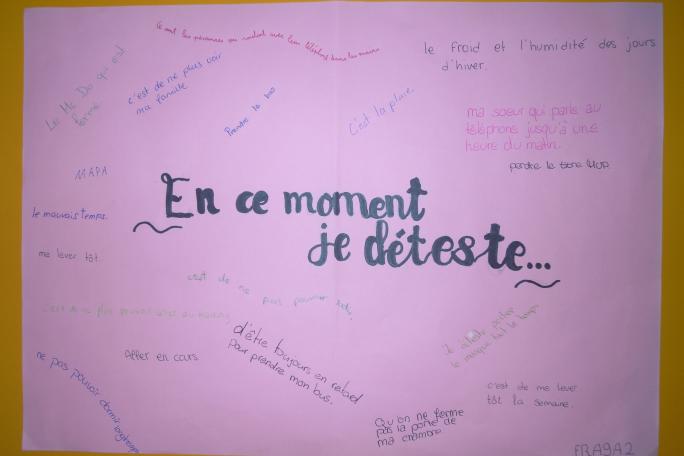 Ce sont les personnes qui roulent avec leur téléphone dans les mains
le froid et l'humidité des jours
d'hiver.
Le Mc Do qui est
fermé.
c'est de ne plus voir
ma famille
Prendre le bus
C'est la pluie.
ma soeur qui parle au
téléphone jusqu'à une
heure du matin.
perdre le
MAPA
le mauvais temps.
En ce moment
je déteste...
me lever tôt.
c'est de ne pas pouvoir
c'est de ne plus pouvoir
Je déteste porter
le masque tout le temps
d'être toujours en retard
pour prendre mon bus.
Aller en cours
ne pas pouvoir dormir longtemps
c'est de me lever
tôt la semaine.
Qu'on ne ferme
pas la porte de
ma chambre.
FRA9A2